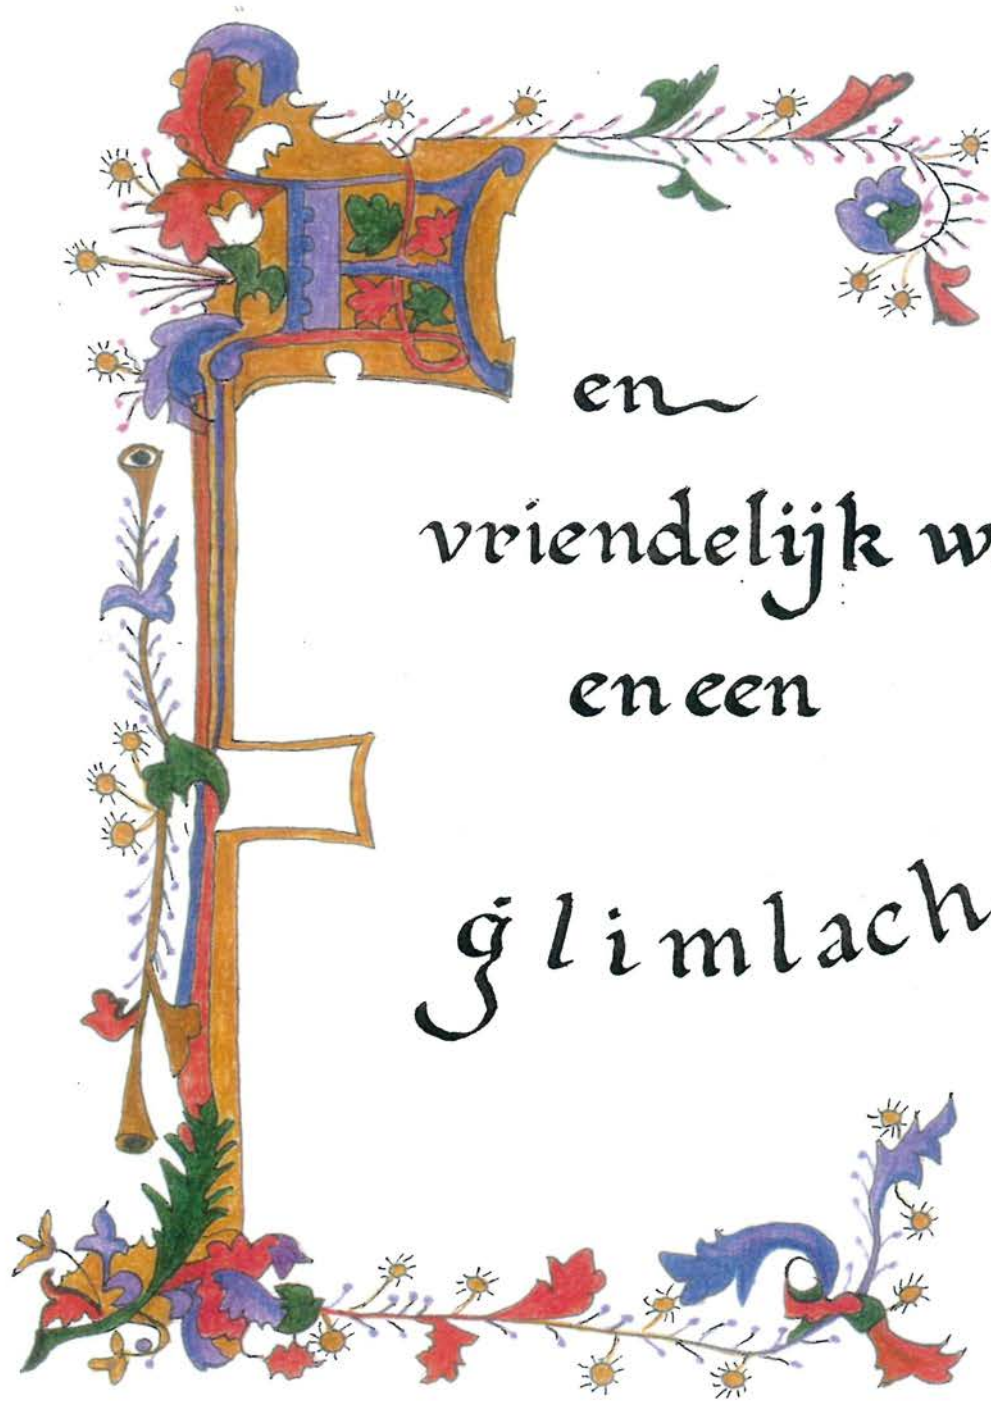 Een
vriendelijk w
en een
glimlach